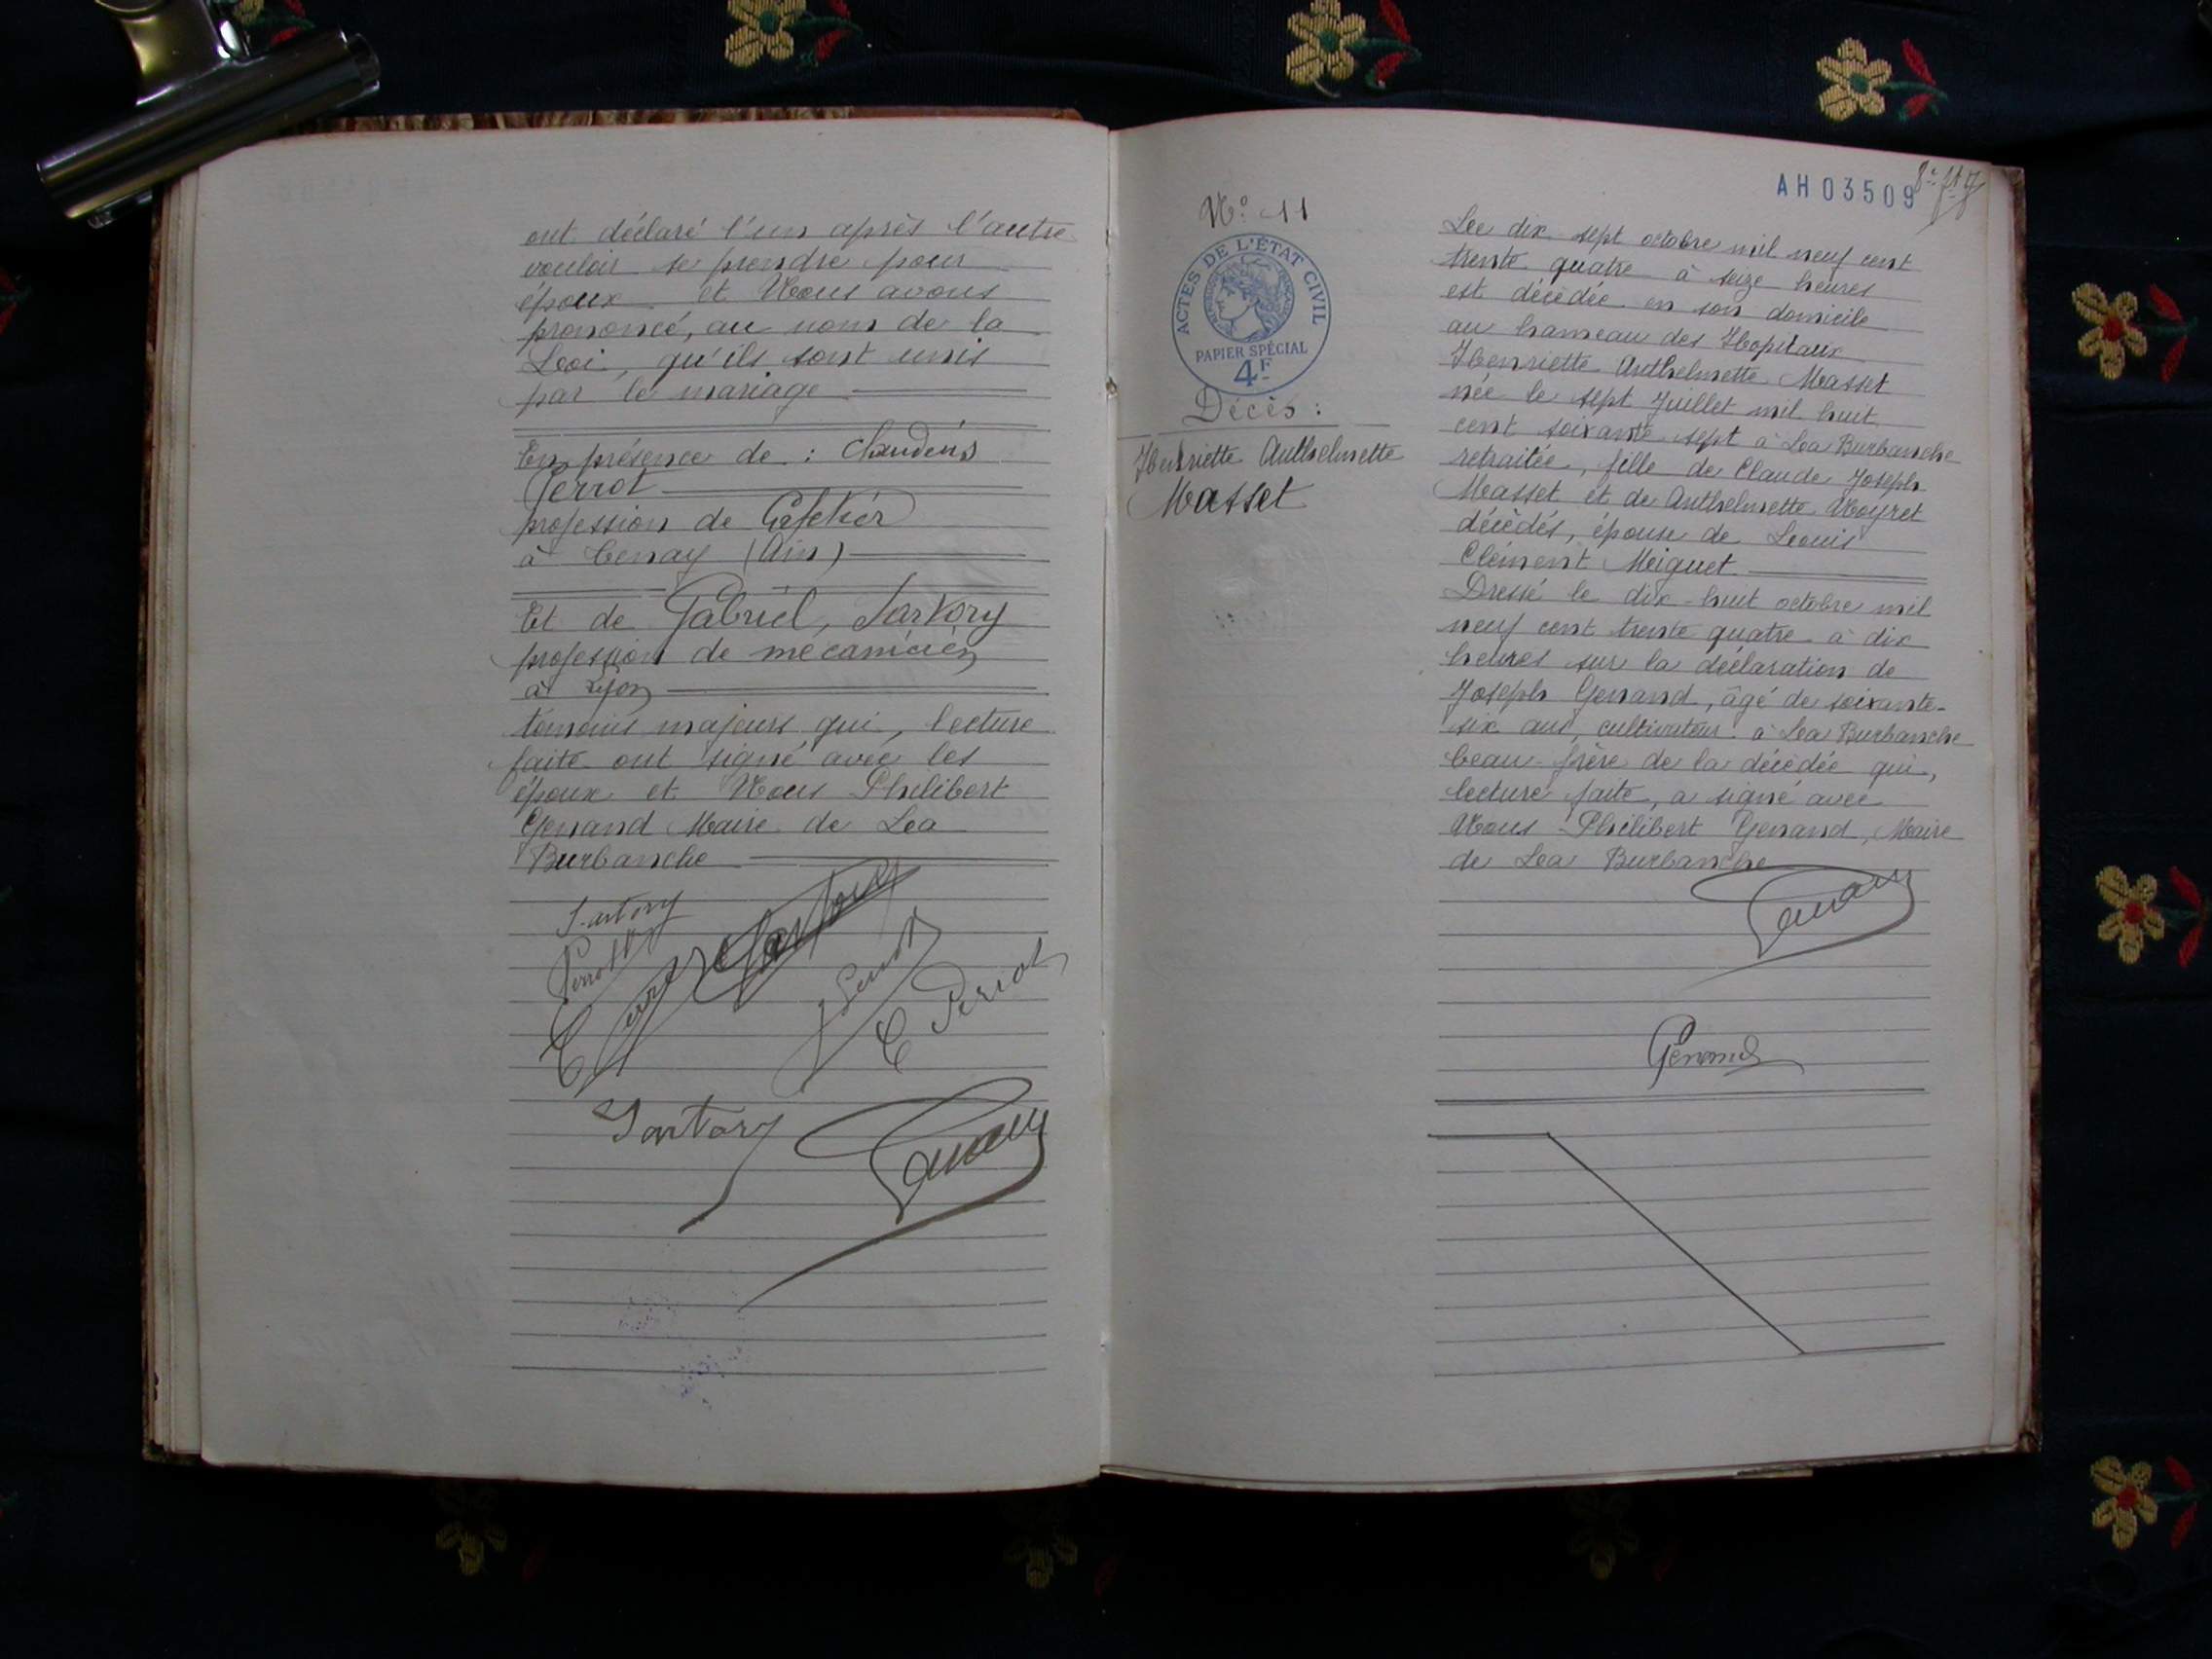 ont déclaré l'un après l'autre
vouloir se prendre pour
époux et Nous avons
prononcé, au nom de la
Loi, qu'ils sont unis
par le mariage
En présence de : Claudius
Perrot
profession de Cafetier
à Tenay (Ain)
Et de Gabriel, Sartory
profession de mécanicien
à Lyon
témoins majeurs qui, lecture
faite ont signé avec les
époux et Nous Philibert
Genand Maire de La
Burbanche
Sartory
Perrot
Sartory
C Periot
Sartory
Genand
N° 11
ACTES DE L'ÉTAT CIVIL
PAPIER SPÉCIAL
4F
Décès :
Henriette Anthelmette
Masset
AH03509
Le dix-sept octobre mil neuf cent
trente quatre à seize heures
est décédée en son domicile
au hameau des Hôpitaux
Henriette Anthelmette Masset
née le sept Juillet mil huit
cent soixante-sept à La Burbanche
retraitée, fille de Claude Joseph
Masset et de Anthelmette Moyret
décédés, épouse de Louis
Clément Meiguet
Dressé le dix-huit octobre mil
neuf cent trente quatre à dix
heures sur la déclaration de
Joseph Genand, âgé de soixante-
six ans, cultivateur à La Burbanche
beau-frère de la décédée qui,
lecture faite, a signé avec
Nous Philibert Genand, Maire
de La Burbanche
Genand
Genand